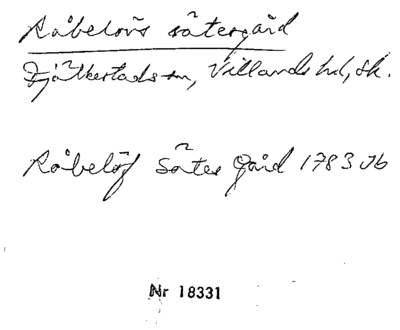 Råbelövs sätesgård
Fjälkestads sn, Villands hd, Sk.
Råbelöf Sätes Gård 1783 Jb
Nr 18331